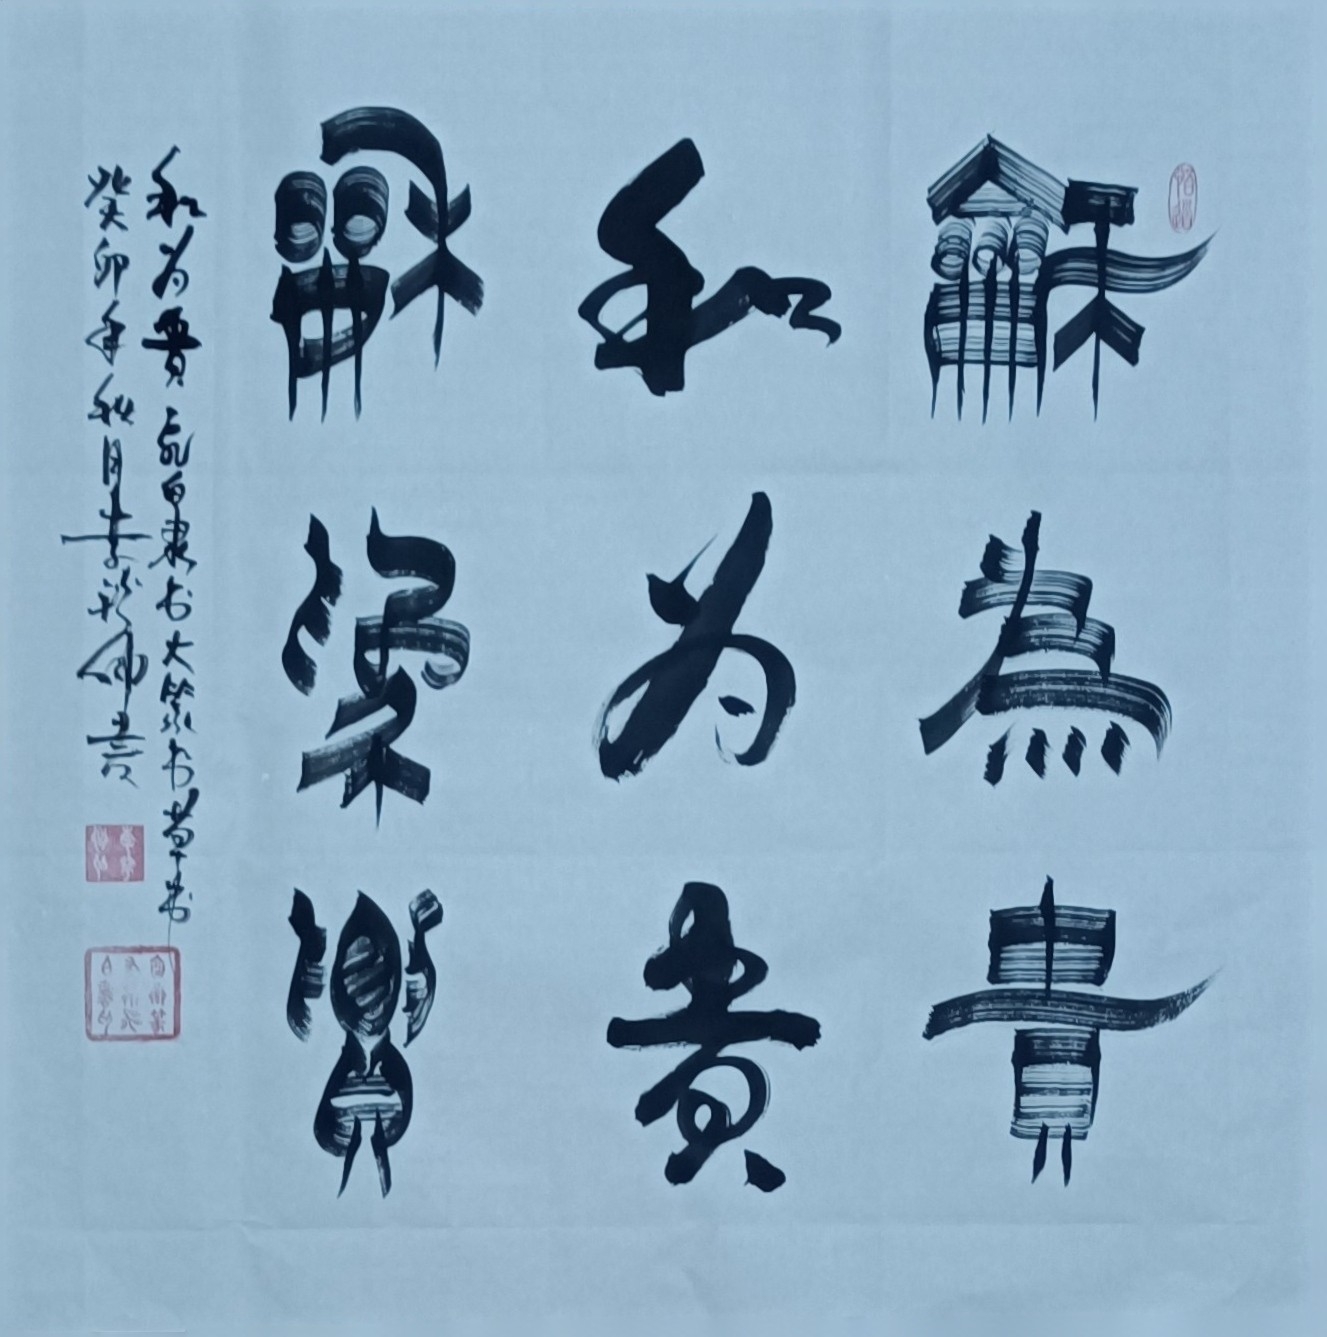 龢為貴
和为贵
龢為貴
和为贵飞白隶书大篆书草书
癸卯年秋月李